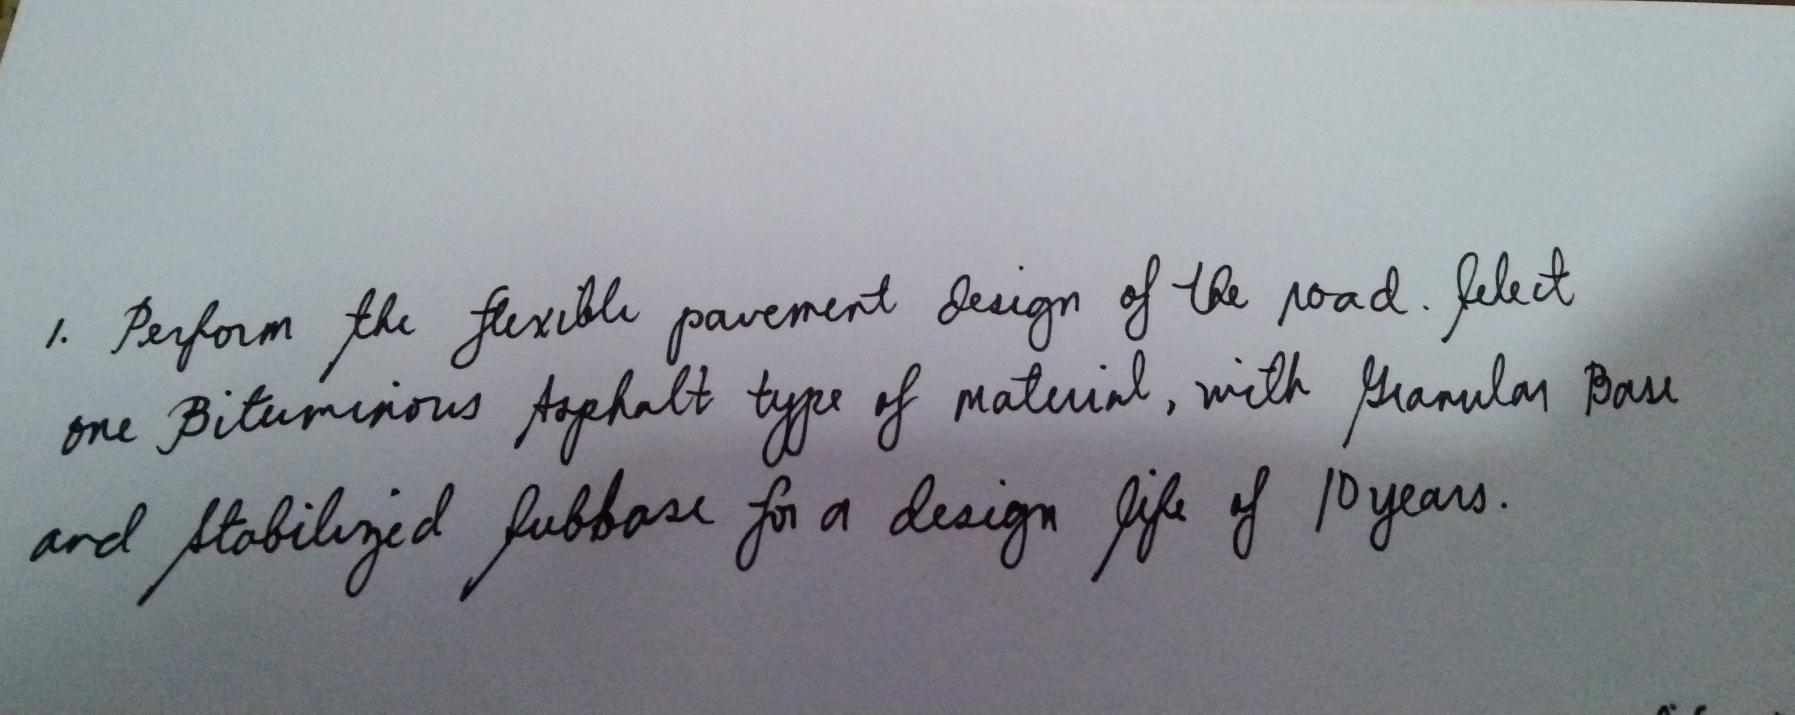 1. Perform the flexible pavement design of the road. Select
one Bituminous Asphalt type of material, with Granular Base
and Stabilized Subbase for a design life of 10 years.